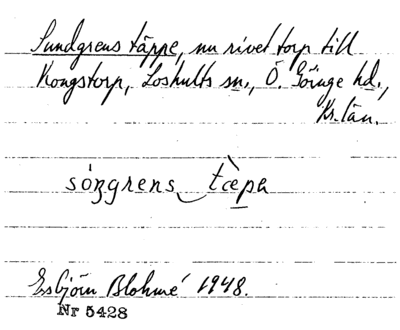 Sundgrens täppe, nu rivet torp till
Kongstorp, Loshults sn., Ö. Göinge hd.,
Kr. län.
sóŋgrens‿tæ̀pə
Esbjörn Blohmé 1948.
Nr 5428